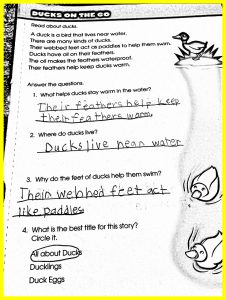 DUCKS ON THE GO
Read about ducks.
A duck is a bird that lives near water.
There are many kinds of ducks.
Their webbed feet act as paddles to help them swim.
Ducks have oil on their feathers.
The oil makes the feathers waterproof.
Their feathers help keep ducks warm.
Answer the questions.
1. What helps ducks stay warm in the water?
Their feathers help keep
their feathers warm.
2. Where do ducks live?
Ducks live near water
3. Why do the feet of ducks help them swim?
Their webbed feet act
like paddles
4. What is the best title for this story?
Circle it.
All about Ducks
Ducklings
Duck Eggs